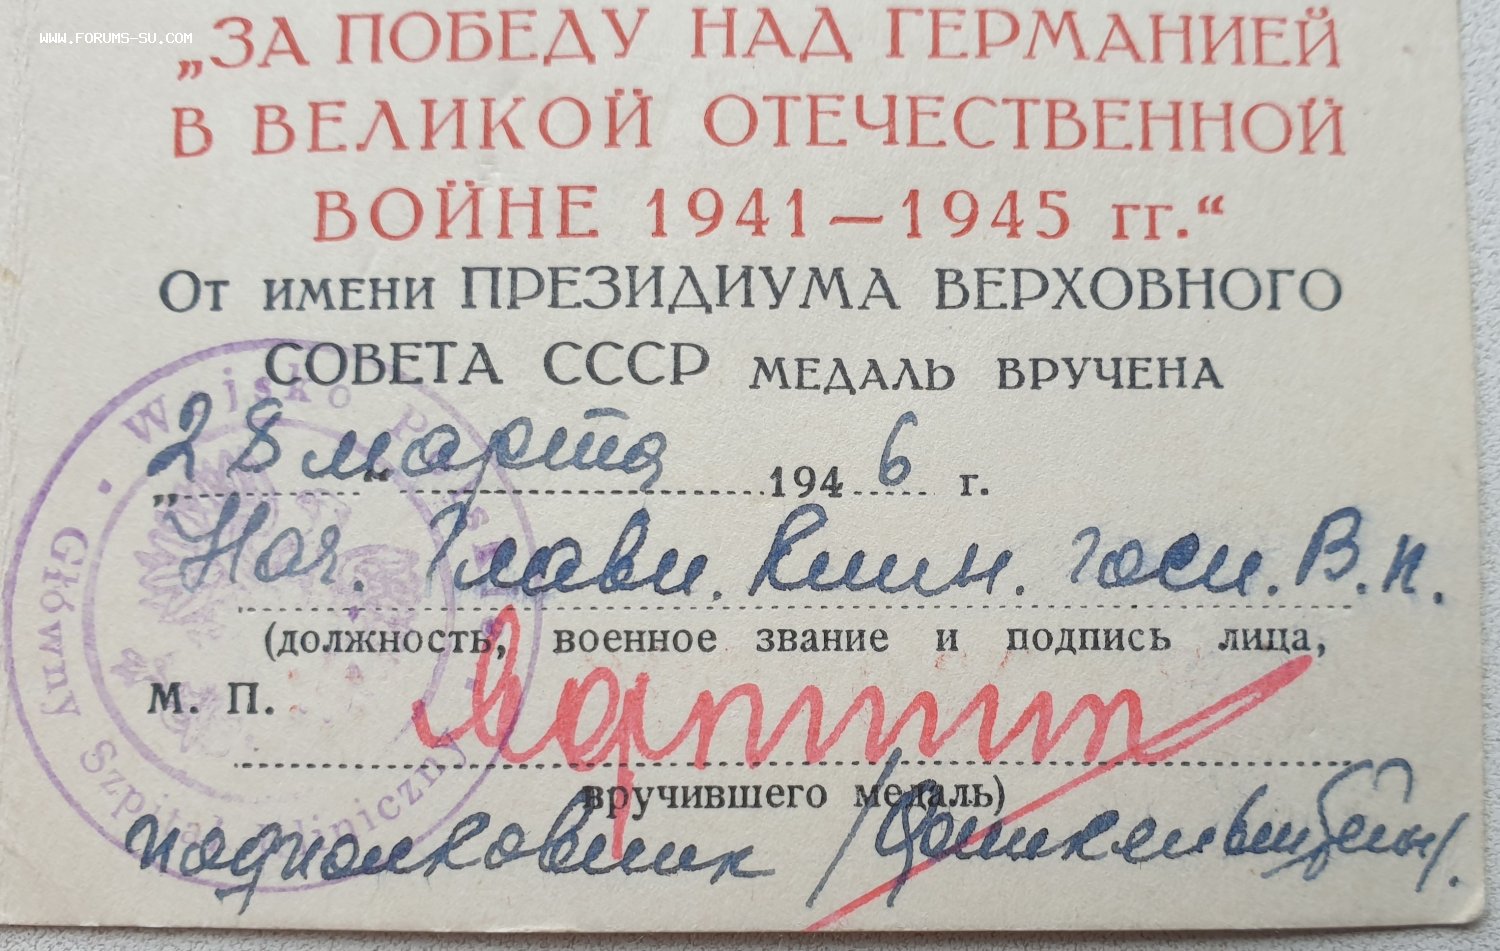 WWW.FORUMS-SU.COM
„ЗА ПОБЕДУ НАД ГЕРМАНИЕЙ
В ВЕЛИКОЙ ОТЕЧЕСТВЕННОЙ
ВОЙНЕ 1941—1945 гг.“
От имени ПРЕЗИДИУМА ВЕРХОВНОГО
СОВЕТА СССР МЕДАЛЬ ВРУЧЕНА
„28“ марта 1946 г.
Нач. Главн. Клин. госп. В.П.
(должность, военное звание и подпись лица,
М. П.
вручившего медаль)
подполковник
Wojsko Polskie
Główny Szpital Kliniczny